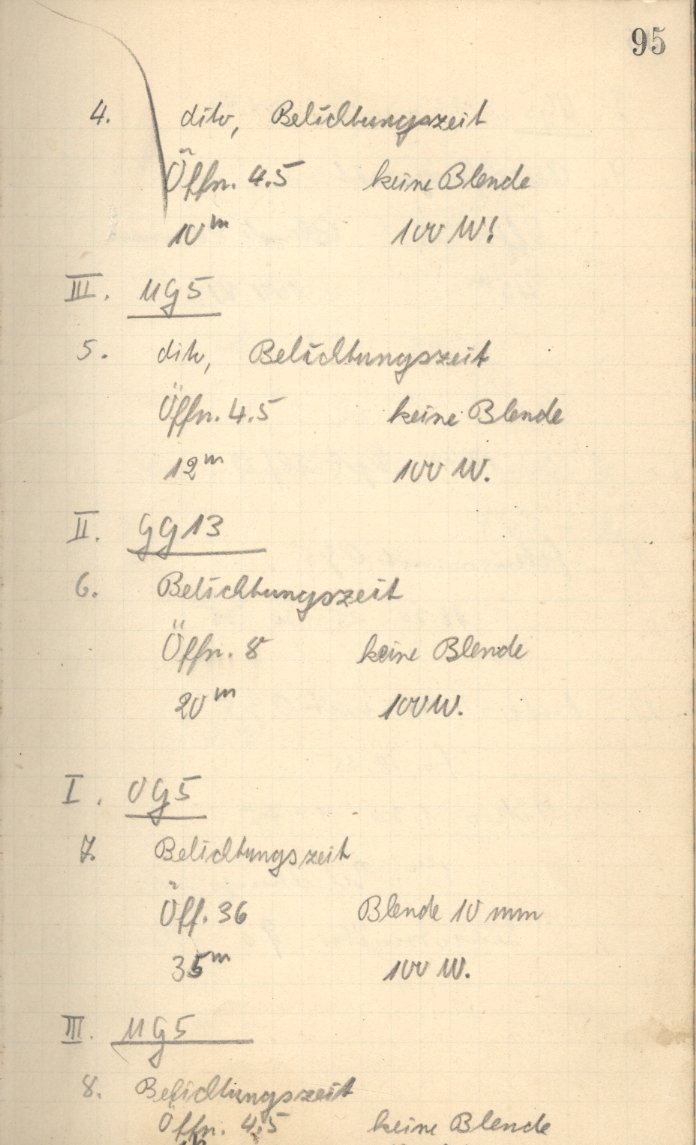 95
4. dito, Belichtungszeit
Öffn. 4.5 keine Blende
10ᵐ 100 W!
III. UG5
5. dito, Belichtungszeit
Öffn. 4.5 keine Blende
12ᵐ 100 W.
II. GG13
6. Belichtungszeit
Öffn. 8 keine Blende
20ᵐ 100 W.
I. OG5
7. Belichtungszeit
Öff. 36 Blende 10 mm
35ᵐ 100 W.
III. UG5
8. Belichtungszeit
Öffn. 4.5 keine Blende